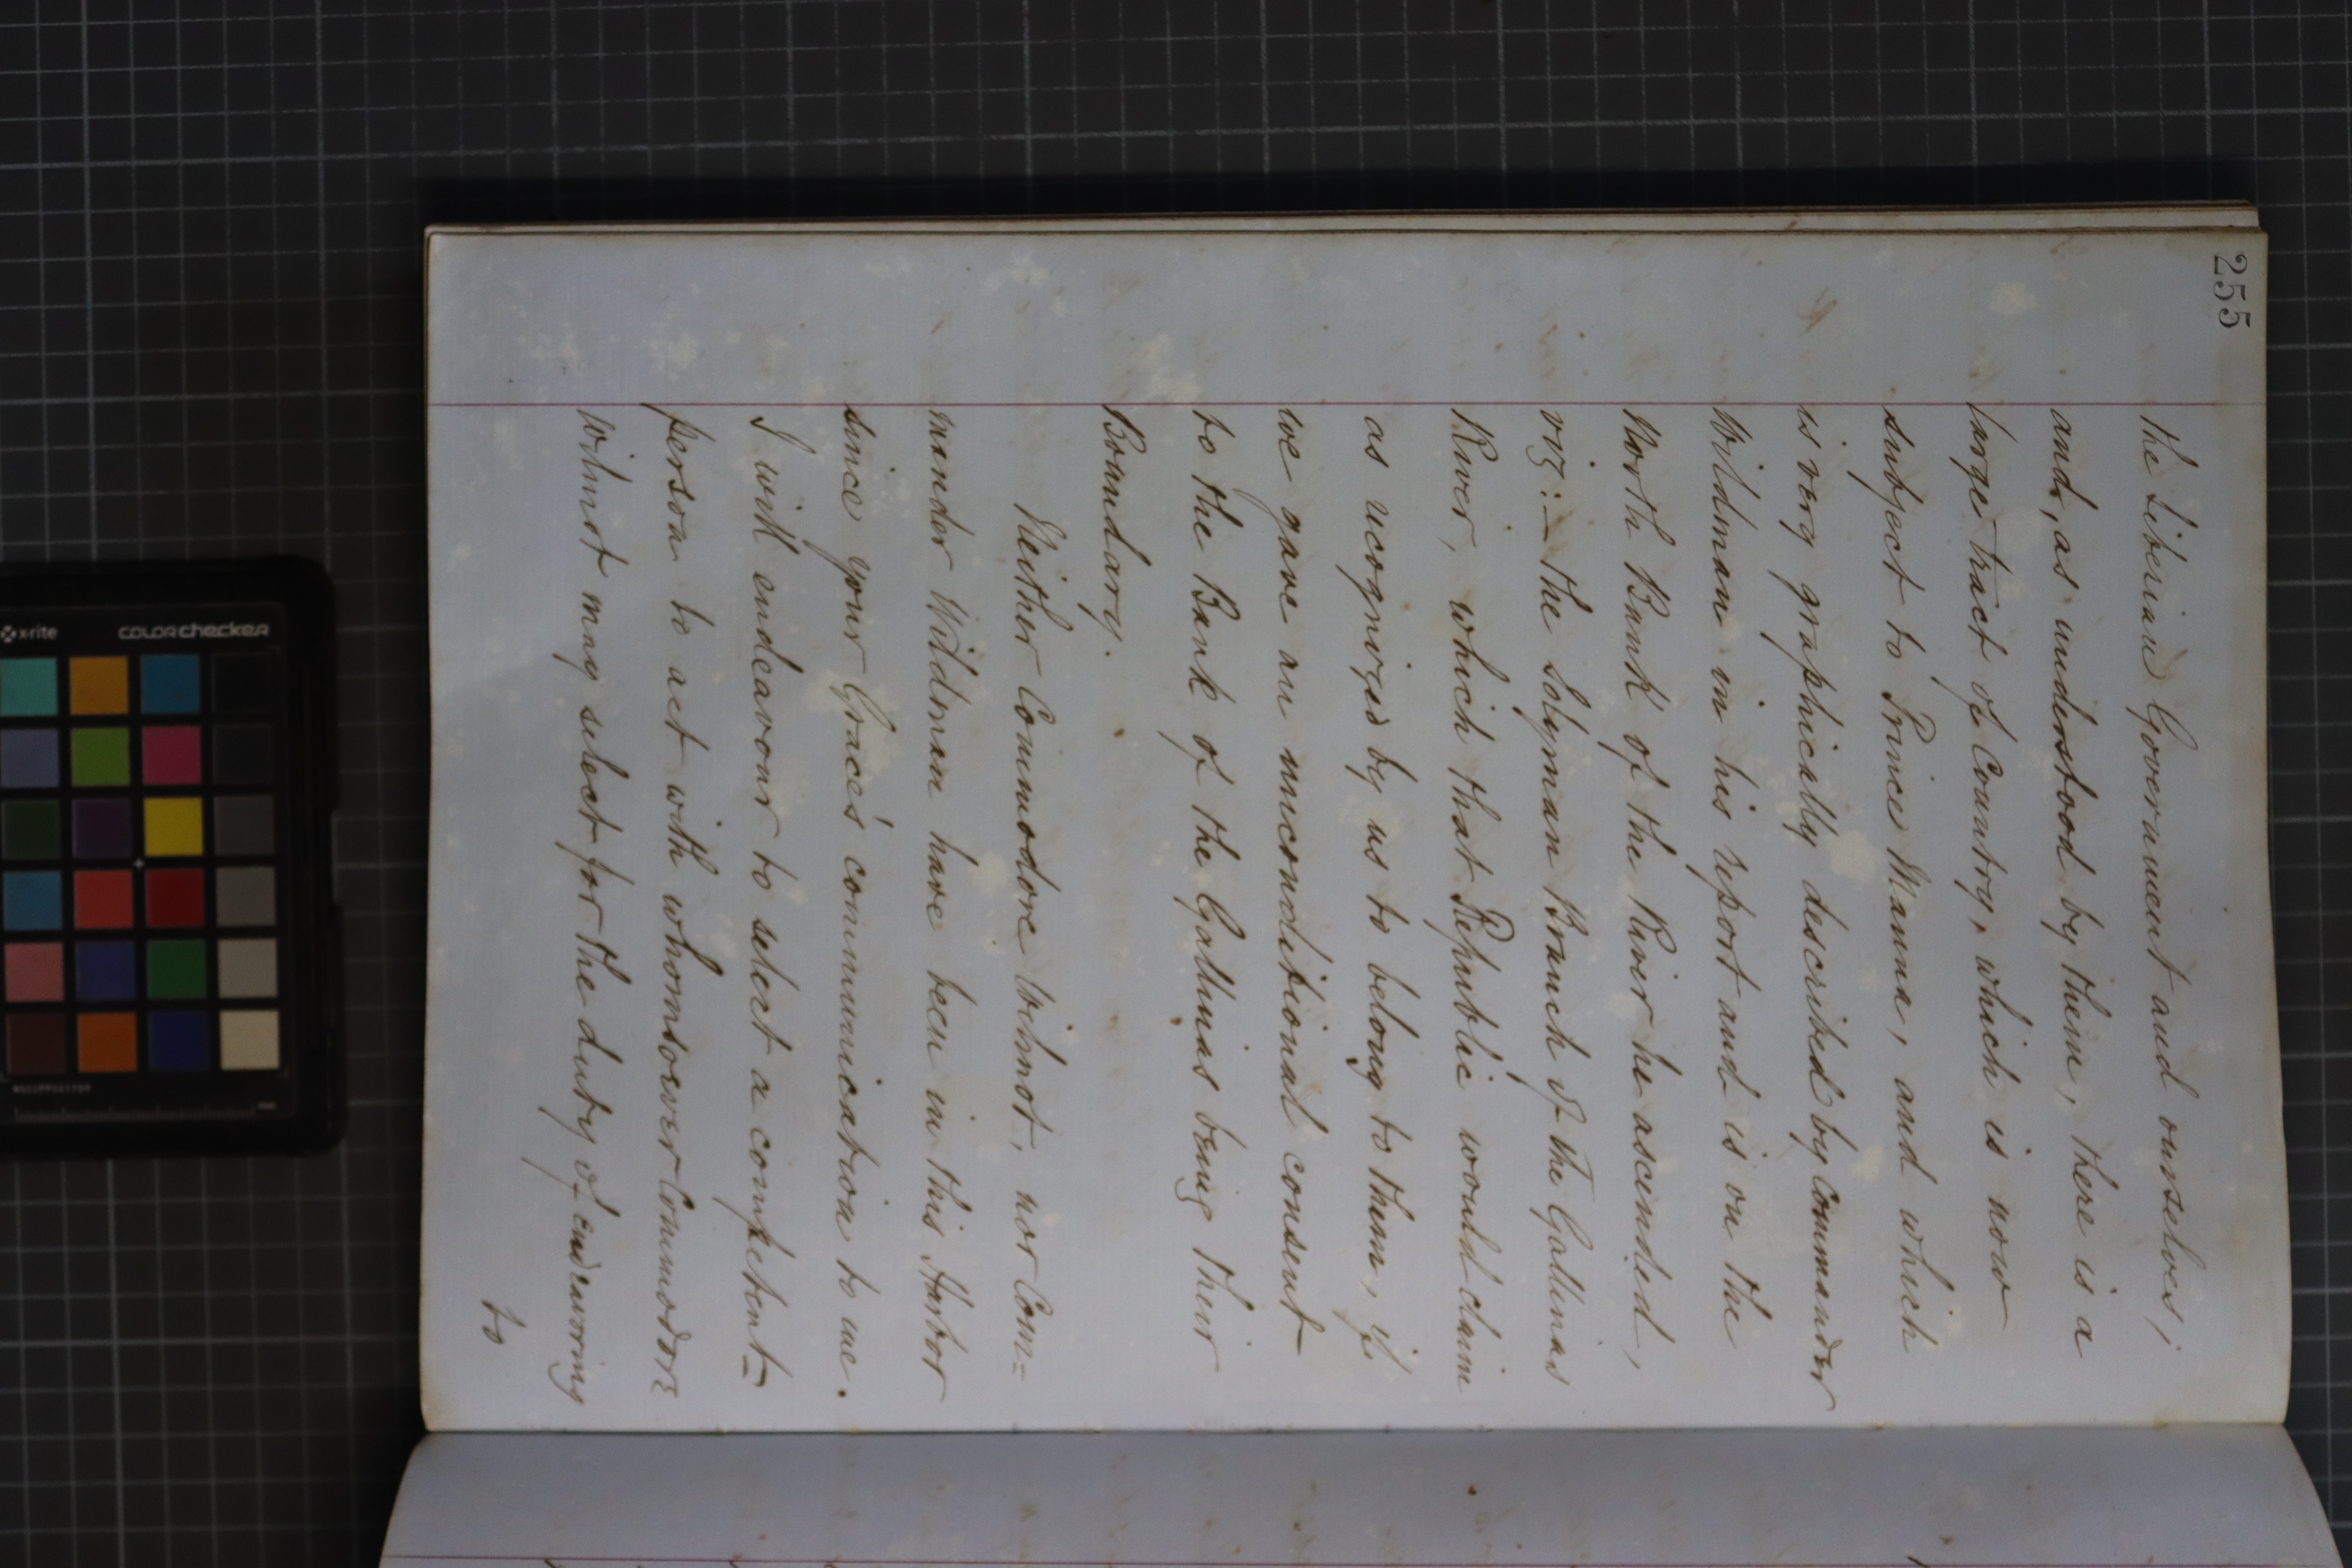 255
the Liberian Government and ourselves;
and, as understood by them, there is a
large tract of Country, which is now
subject to Prince Manna, and which
is very graphically described by Commander
Wildman in his report and is on the
North Bank of the River he ascended,
viz:- the Solyman Branch of the Gallinas
River, which that Republic would claim
as recognized by us to belong to them, if
we gave an unconditional consent
to the Bank of the Gallinas being their
Boundary.
Neither Commodore Wilmot, nor Com=
mander Wildman have been in this Harbor
since your Grace's communication to me.
I will endeavour to select a competent=
person to act with whomsoever Commodore
Wilmot may select for the duty of endeavoring
to
x-rite
colorchecker